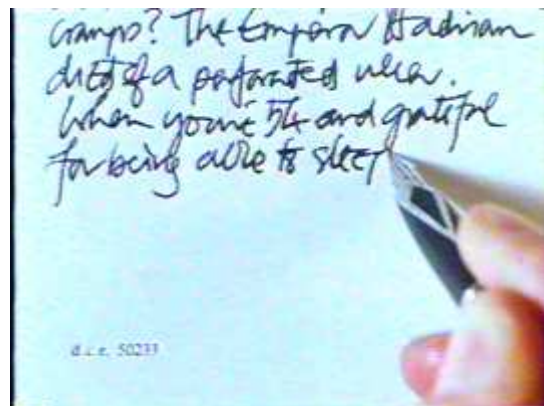 cramps? The Emperor Hadrian
died of a perforated ulcer.
When you're 54 and grateful
for being able to sleep
d.c.e. 50233